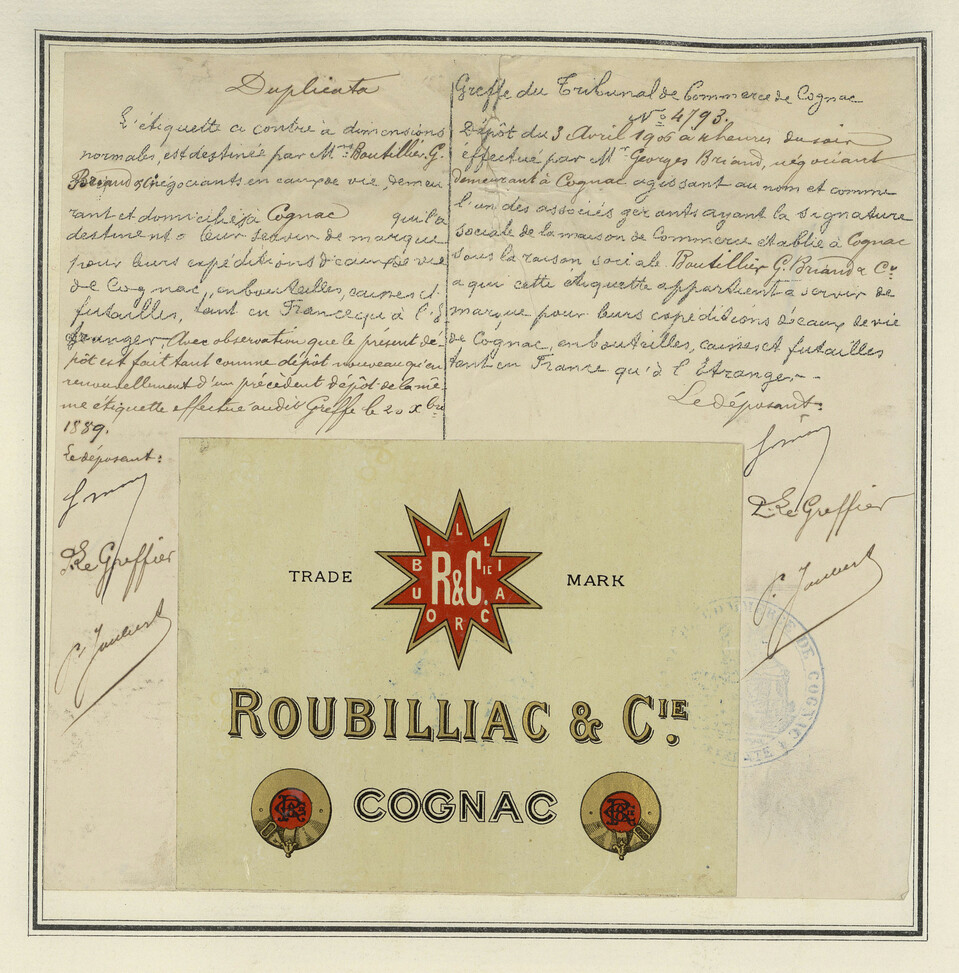 Duplicata
L'étiquette ci contre à dimensions
normales, est destinée par Mrs Boutillier, G.
Briand & Cie négociants en eaux de vie, demeu
rant et domiciliés à Cognac qui la
destinent à leur servir de marque
pour leurs expéditions d'eaux de vie
de Cognac, en bouteilles, caisses et
futailles, tant en France qu'à l'E
tranger. Avec observation que le présent dé-
pôt est fait tant comme dépôt nouveau qu'en
renouvellement d'un précédent dépôt de la mê-
me étiquette effectué audit Greffe le 20 Xbre
1889.
Le déposant:
P. Le Greffier
Greffe du Tribunal de Commerce de Cognac
No 4793.
Dépôt du 3 Avril 1906 à heures du soir
effectué par Mr Georges Briand, négociant
demeurant à Cognac agissant au nom et comme
l'un des associés gérants ayant la signature
sociale de la maison de Commerce établie à Cognac
sous la raison sociale Boutillier G. Briand & Co
à qui cette étiquette appartient à servir de
marque pour leurs expéditions d'eaux de vie
de Cognac, en bouteilles, caisses et futailles
tant en France qu'à l'Étranger.-
Le déposant:
P. Le Greffier
ROUBILLIAC
R&CIE.
TRADE MARK
ROUBILLIAC & CIE.
COGNAC
COMMERCE DE COGNAC